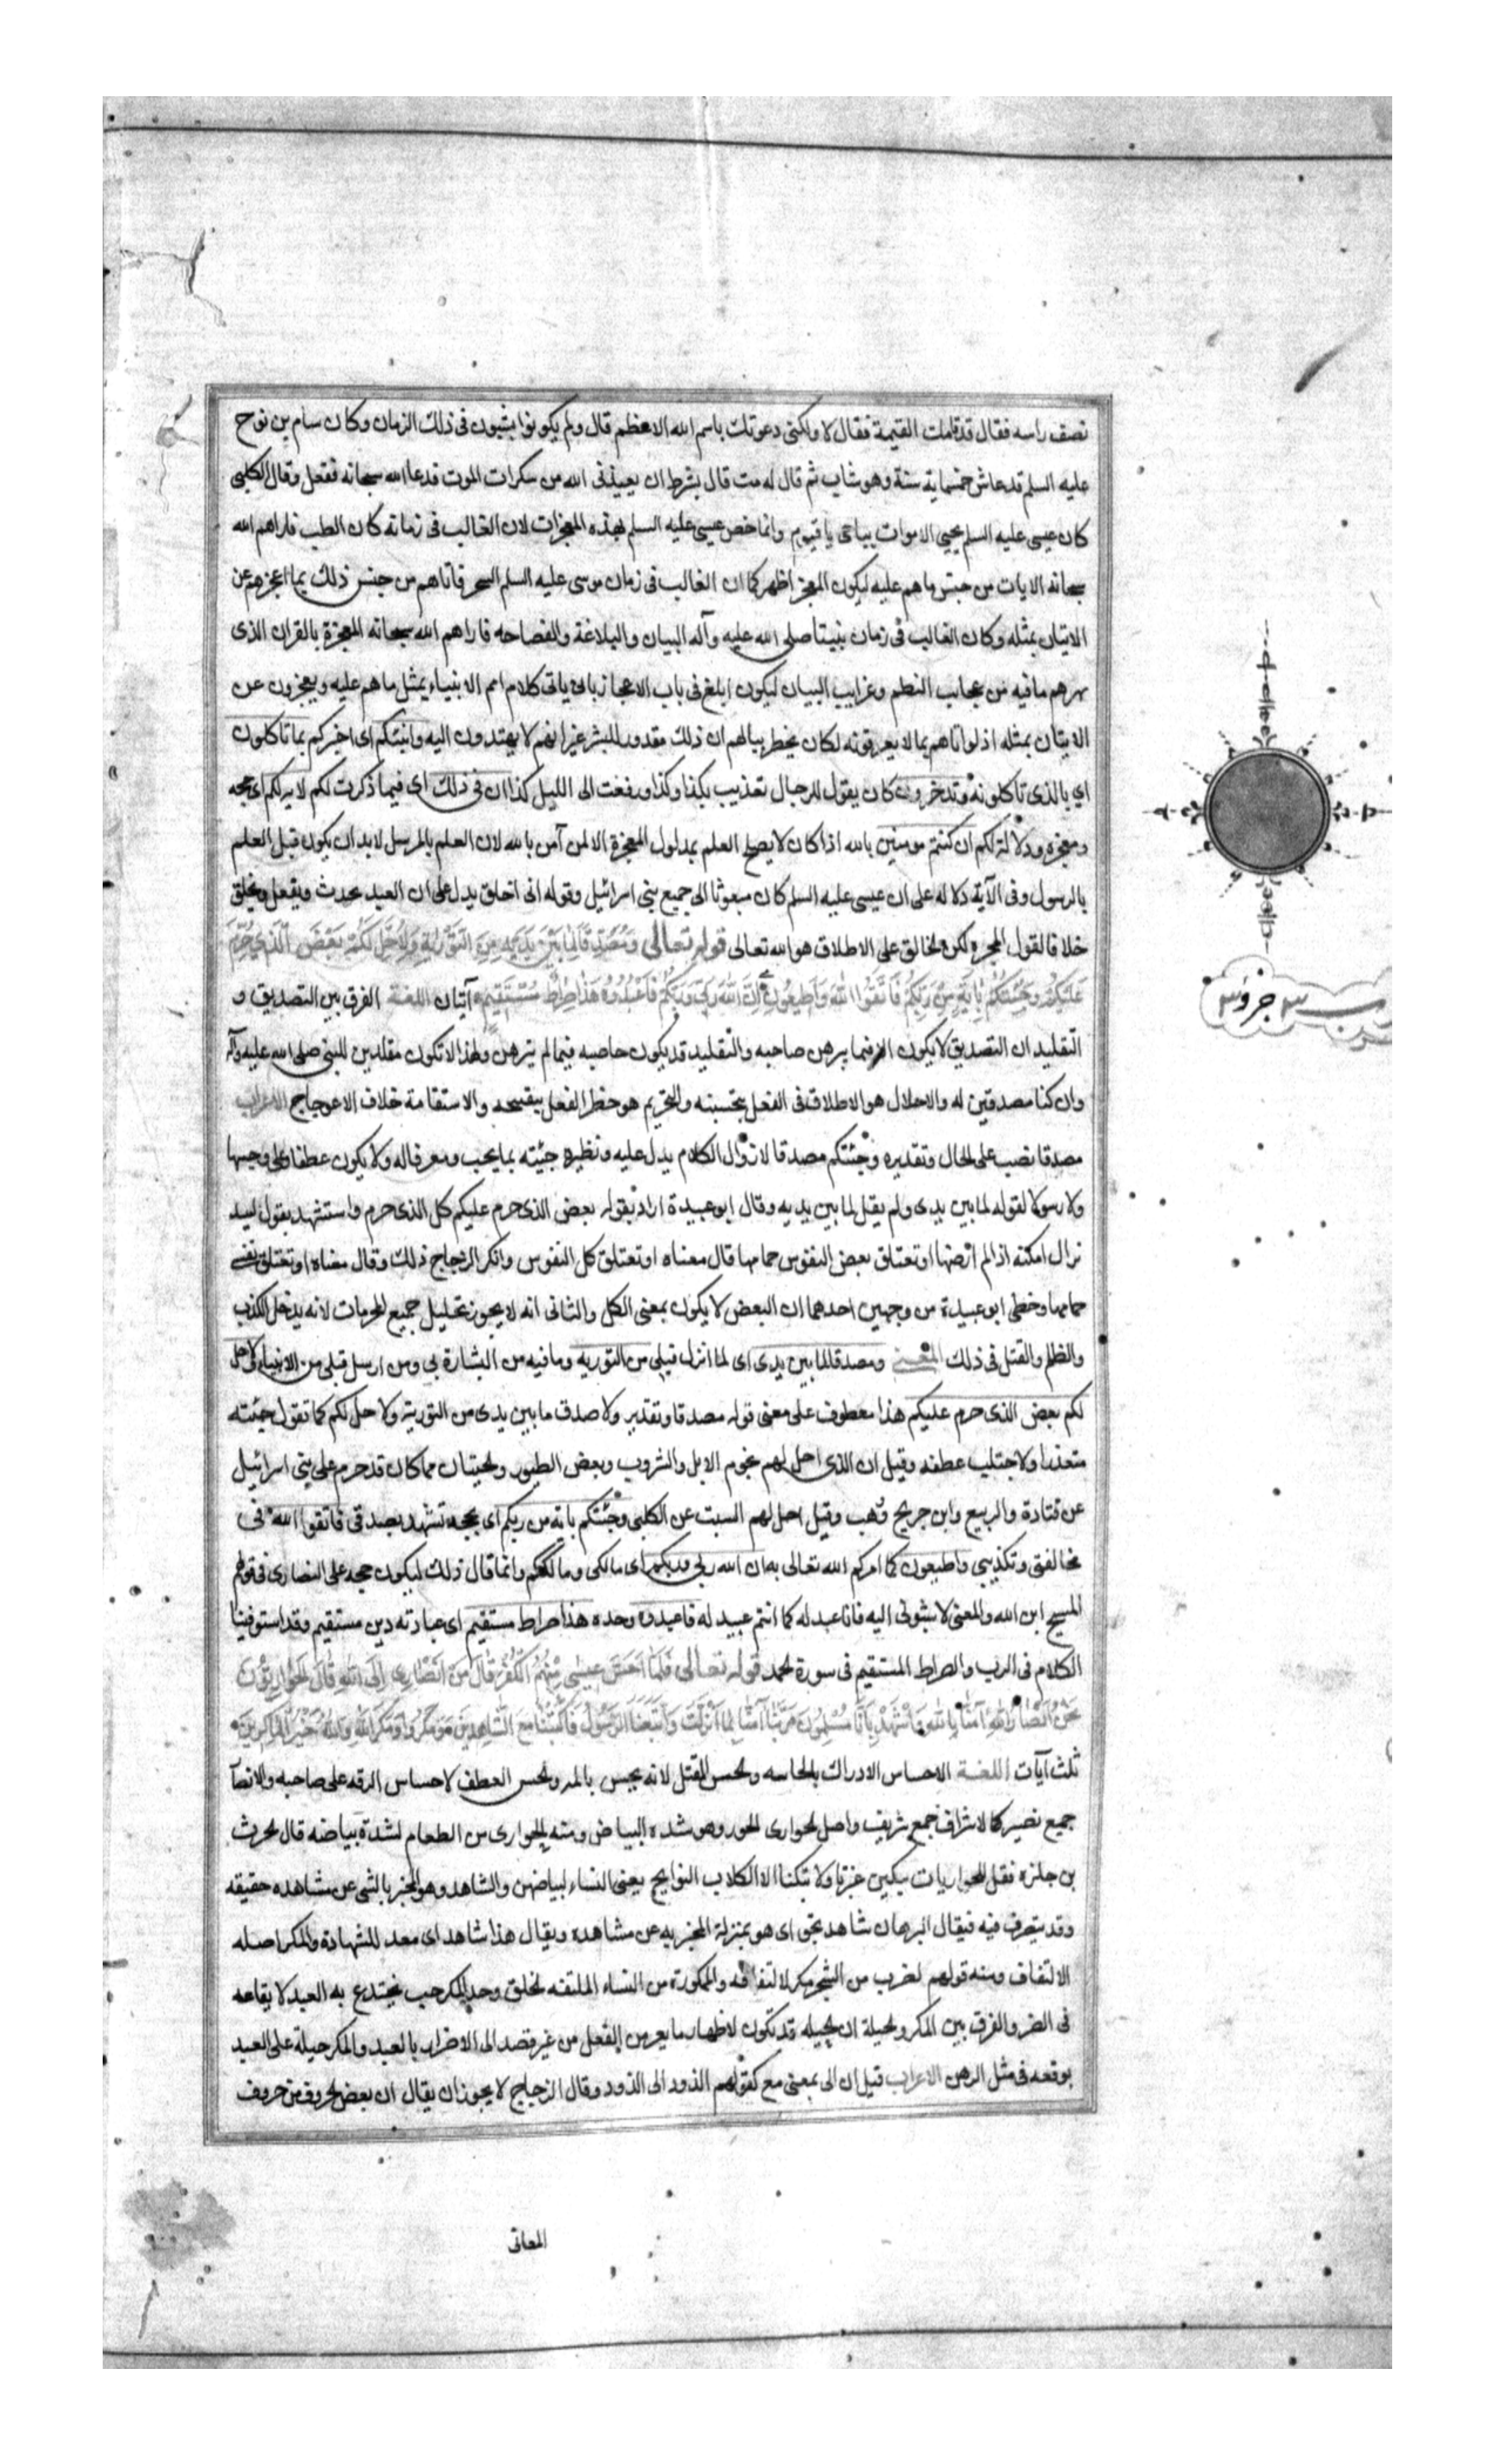 نصف راسه فقال قد قامت القيمة فقال لا ولكنى دعوتك باسم الله الاعظم قال ولم يكونوا يشيبون فى ذلك الزمان وكان سام بن نوح
عليه السلم قد عاش خمسماية سنة وهو شاب ثم قال له مت قال بشرط ان يعيذنى الله من سكرات الموت فدعا الله سبحانه ففعل وقال الكلبى
كان عيسى عليه السلم يحيى الاموات بياحى يا قيوم وانما خص عيسى عليه السلم بهذه المعجزات لان الغالب فى زمانه كان الطب فاراهم الله
سبحانه الايات من جنس ما هم عليه ليكون المعجز اظهر كما ان الغالب فى زمان موسى عليه السلم السحر فاتاهم من جنس ذلك بما اعجزهم عن
الاتيان بمثله وكان الغالب فى زمان نبينا صلى الله عليه وآله البيان والبلاغة والفصاحه فاراهم الله سبحانه المعجزة بالقران الذى
بهرهم ما فيه من عجايب النظم وغرايب البيان ليكون ابلغ فى باب الاعجاز بان ياتى كلام امم الانبياء بمثل ما هم عليه ويعجزون عن
الاتيان بمثله اذ لو اتاهم بما لا يعرفونه لكان يخطر ببالهم ان ذلك مقدور للبشر غير انهم لا يهتدون اليه وانبئكم اى اخبركم بما تاكلون
اي بالذى تاكلونه وتدخرون كان يقول للرجال تغذيت بكذا وكذا ورفعت الى الليل كذا ان فى ذلك اى فيما ذكرت لكم لاية لكم اى حجه
ومعجزه ودلالة لكم ان كنتم مومنين بالله اذا كان لا يصح العلم بمدلول المعجزة الا لمن آمن بالله لان العلم بالمرسل لا بد ان يكون قبل العلم
بالرسول وفى الآية دلاله على ان عيسى عليه السلم كان مبعوثا الى جميع بنى اسرائيل وقوله انى اخلق يدل على ان العبد يحدث ويفعل ويخلق
خلافا لقول المجبره لكن الخالق على الاطلاق هو الله تعالى قوله تعالى وَمُصَدِّقًا لِمَا بَيْنَ يَدَيَّ مِنَ التَّوْرٰيةِ وَلِاُحِلَّ لَكُمْ بَعْضَ الَّذِي حُرِّمَ
عَلَيْكُمْ وَجِئْتُكُمْ بِاٰيَةٍ مِنْ رَبِّكُمْ فَاتَّقُوا اللهَ وَاَطِيعُونِ اِنَّ اللهَ رَبِّي وَرَبُّكُمْ فَاعْبُدُوهُ هَذَا صِرَاطٌ مُسْتَقِيمٌ آيتان اللغــة الفرق بين التصديق و
التقليد ان التصديق لا يكون الا فيما يبرهن صاحبه والتقليد قد يكون صاحبه فيما لم يتبرهن ولهذا لا تكون مقلدين للنبى صلى الله عليه وآله
وان كنا مصدقين له والاحلال هو الاطلاق فى الفعل بتحسينه والتحريم هو حظر الفعل بتقبيحه والاستقامة خلاف الاعوجاج الاعراب
مصدقا نصب على الحال وتقديره وجئتكم مصدقا لان اول الكلام يدل عليه ونظيره جيته بما يحب ومعرفا له ولا يكون عطفا على وجيها
ولا رسولا لقوله لما بين يدى ولم يقل لما بين يديه وقال ابو عبيدة اراد بقوله بعض الذى حرم عليكم كل الذى حرم واستشهد بقول لبيد
تراك امكنة اذا لم ارضها او تعتلق بعض النفوس حمامها قال معناه او تعتلق كل النفوس وانكر الزجاج ذلك وقال معناه او تعتلق نفسى
حمامها وخطى ابو عبيدة من وجهين احدهما ان البعض لا يكون بمعنى الكل والثانى انه لا يجوز تحليل جميع المحرمات لانه يدخل الكذب
والظلم والقتل فى ذلك المعــنى ومصدقا لما بين يدى اى لما انزل قبلى من التوريه وما فيه من البشارة بى ومن ارسل قبلى من الانبياء ولاحل
لكم بعض الذى حرم عليكم هذا معطوف على معنى قوله مصدقا وتقديره ولاصدق ما بين يدى من التورية ولاحل لكم كما تقول جئته
متعذرا ولاجتلب عطفه وقيل ان الذى احل لهم لحوم الابل والثروب وبعض الطيور والحيتان مما كان قد حرم على بنى اسرائيل
عن قتادة والربيع وابن جريج وهب وقيل احل لهم السبت عن الكلبى وجئتكم باية من ربكم اى بحجه تشهد بصدقى فاتقوا الله فى
مخالفتى وتكذيبى واطيعون كما امركم الله تعالى به ان الله ربى وربكم اى مالكى ومالككم وانما قال ذلك ليكون حجه على النصارى فى قولهم
المسيح ابن الله والمعنى لا تنسبونى اليه فانا عبد له كما انتم عبيد له فاعبدوه وحده هذا صراط مستقيم اى عبادته دين مستقيم وقد استوفينا
الكلام فى الرب والصراط المستقيم فى سورة الحمد قوله تعالى فَلَمَّا اَحَسَّ عِيسٰى مِنْهُمُ الْكُفْرَ قَالَ مَنْ اَنْصَارِي اِلَى اللهِ قَالَ الْحَوَارِيُّونَ
نَحْنُ اَنْصَارُ اللهِ اٰمَنَّا بِاللهِ وَاشْهَدْ بِاَنَّا مُسْلِمُونَ رَبَّنَا اٰمَنَّا بِمَا اَنْزَلْتَ وَاتَّبَعْنَا الرَّسُولَ فَاكْتُبْنَا مَعَ الشَّاهِدِينَ وَمَكَرُوا وَمَكَرَ اللهُ وَاللهُ خَيْرُ الْمَاكِرِينَ
ثلث آيات اللغــة الاحساس الادراك بالحاسه والحس القتل لانه يحس بالمه والحس العطف لاحساس الرقه على صاحبه والانصار
جميع نصير كالاشراف جمع شريف واصل الحوارى الحور وهو شده البياض ومنه الحوارى من الطعام لشدة بياضه قال الحرث
بن حلزه فقل للحواريات يبكين غيرنا ولا تبكنا الا الكلاب النوابح يعنى النساء لبياضهن والشاهد وهو المخبر بالشى عن مشاهده حقيقه
وقد يتصرف فيه فيقال البرهان شاهد بحق اى هو بمنزلة المخبر به عن مشاهده ويقال هذا شاهد اى معد للشهادة والمكر اصله
الالتفاف ومنه قولهم لضرب من الشجر مكر لالتفافه والممكورة من النساء الملتفه الخلق وحد المكر خب يختدع به العبد لايقاعه
فى الضر والفرق بين المكر والحيلة ان الحيله قد تكون لاظهار ما يعسر من الفعل من غير قصد الى الاضرار بالعبد والمكر حيلة على العبد
يوقعه فى مثل الوهن الاعراب قيل ان الى بمعنى مع كقولهم الذود الى الذود وقال الزجاج لا يجوز ان يقال ان بعض الحروف من حروف
المعانى